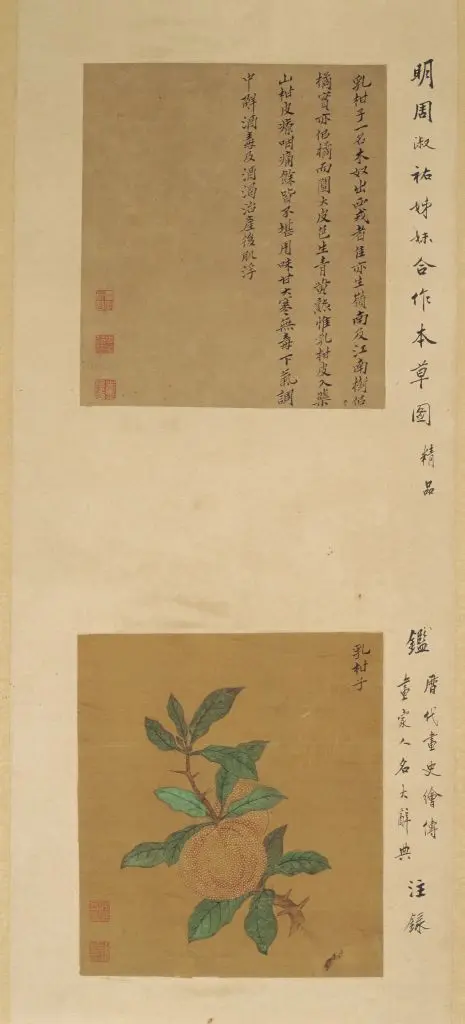 明周淑祐姊妹合作本草图 精品
乳柑子一名木奴出西戎者佳亦生嶺南及江南樹佀
橘實亦佀橘而圓大皮色生青黃熟惟乳柑皮入藥
山柑皮療咽痛餘皆不堪用味甘大寒無毒下氣調
中解酒毒及酒渴治產後肌浮
鑑
曆代畫史繪傳
畫家人名大辭典
注錄
乳柑子